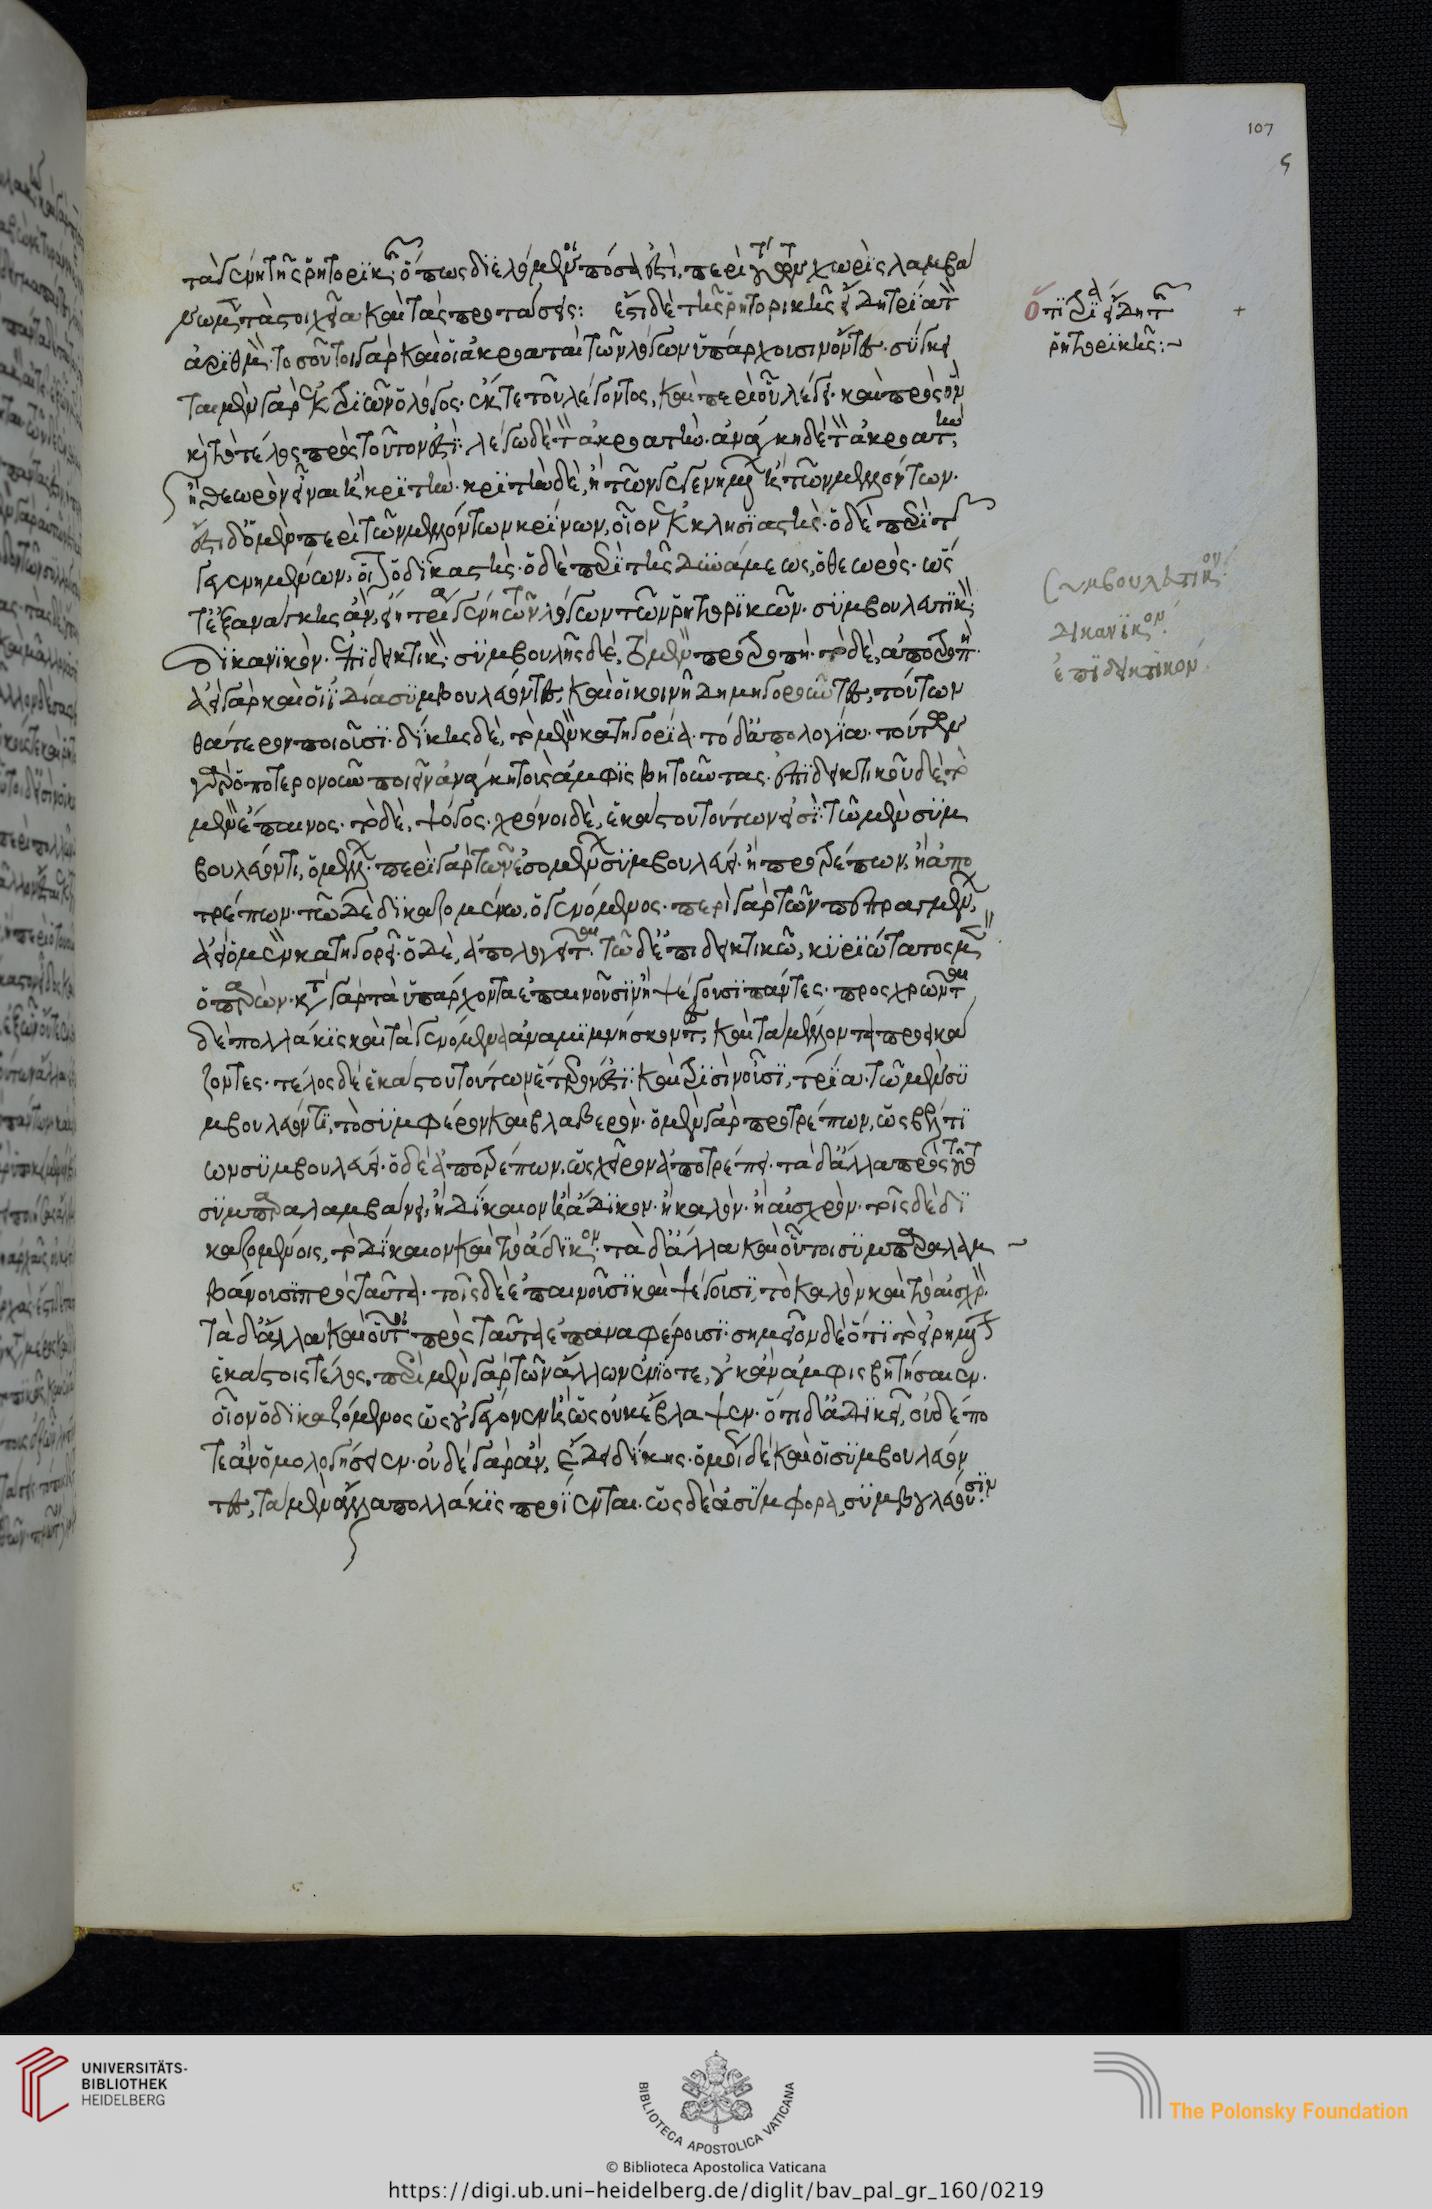 107
ϛ
τὰ γένη τῆς ῥητορικῆς, ὅπως διελόμενοι πόσα ἐστὶ, περὶ τούτων χωρὶς λαμβά
νωμεν τὰ στοιχεῖα καὶ τὰς προτάσεις: ἔστι δὲ τῆς ῥητορικῆς εἴδη τρία τὸν
ἀριθμόν· τοσοῦτοι γὰρ καὶ οἱ ἀκροαταὶ τῶν λόγων ὑπάρχουσιν ὄντες· σύγκει
ται μὲν γὰρ ἐκ τριῶν ὁ λόγος· ἔκ τε τοῦ λέγοντος, καὶ περὶ οὗ λέγει· καὶ πρὸς ὃν
καὶ τὸ τέλος πρὸς τοῦτον ἐστί· λέγω δὲ τὸν ἀκροατήν· ἀνάγκη δὲ τὸν ἀκροατὴν,
ἢ θεωρὸν εἶναι ἢ κριτήν· κριτὴν δὲ, ἢ τῶν γεγενημένων ἢ τῶν μελλόντων·
ἔστι δ' ὁ μὲν περὶ τῶν μελλόντων κρίνων, οἷον ἐκκλησιαστής· ὁ δὲ περὶ τῶν
γεγενημένων, οἷον ὁ δικαστής· ὁ δὲ περὶ τῆς δυνάμεως, ὁ θεωρός· ὥσ
τε ἐξ ἀνάγκης ἂν, εἴη τρία γένη τῶν λόγων τῶν ῥητορικῶν· συμβουλευτικόν·
δικανικόν· ἐπιδεικτικόν· συμβουλῆς δὲ, τὸ μὲν προτροπή· τὸ δὲ, ἀποτροπή·
ἀεὶ γὰρ καὶ οἱ ἰδίᾳ συμβουλεύοντες, καὶ οἱ κοινῇ δημηγοροῦντες, τούτων
θάτερον ποιοῦσι· δίκης δὲ, τὸ μὲν κατηγορία· τὸ δ' ἀπολογία· τούτων
γὰρ ὁποτερονοῦν ποιεῖν ἀνάγκη τοὺς ἀμφισβητοῦντας· ἐπιδεικτικοῦ δὲ τὸ
μὲν ἔπαινος· τὸ δὲ, ψόγος· χρόνοι δὲ, ἑκάστου τούτων εἰσὶ· τῷ μὲν συμ
βουλεύοντι, ὁ μέλλων· περὶ γὰρ τῶν ἐσομένων συμβουλεύει· ἢ προτρέπων, ἢ ἀπο
τρέπων· τῷ δὲ δικαζομένῳ, ὁ γενόμενος· περὶ γὰρ τῶν πεπραγμένων,
ἀεὶ ὁ μὲν κατηγορεῖ· ὁ δὲ, ἀπολογεῖται· τῷ δ' ἐπιδεικτικῷ, κυριώτατος μὲν
ὁ παρών· κατὰ γὰρ τὰ ὑπάρχοντα ἐπαινοῦσιν ἢ ψέγουσι πάντες· προσχρῶνται
δὲ πολλάκις καὶ τὰ γενόμενα ἀναμιμνήσκοντες, καὶ τὰ μέλλοντα προεικά
ζοντες· τέλος δὲ ἑκάστου τούτων ἕτερόν ἐστι· καὶ τρισὶν οὖσι, τρία· τῷ μὲν συ
μβουλεύοντι, τὸ συμφέρον καὶ βλαβερόν· ὁ μὲν γὰρ προτρέπων, ὡς βέλτι
ων συμβουλεύει· ὁ δὲ ἀποτρέπων, ὡς χεῖρον ἀποτρέπει· τὰ δ' ἄλλα πρὸς τοῦτο
συμπαραλαμβάνει, ἢ δίκαιον ἢ ἄδικον· ἢ καλὸν· ἢ αἰσχρὸν· τοῖς δὲ δι
καζομένοις, τὸ δίκαιον καὶ τὸ ἄδικον· τὰ δ' ἄλλα καὶ οὗτοι συμπαραλαμ
βάνουσι πρὸς ταῦτα· τοῖς δὲ ἐπαινοῦσι καὶ ψέγουσι, τὸ καλὸν καὶ τὸ αἰσχρόν·
τὰ δ' ἄλλα καὶ οὗτοι πρὸς ταῦτα ἐπαναφέρουσι· σημεῖον δὲ ὅτι τὸ εἰρημένον
ἑκάστοις τέλος, περὶ μὲν γὰρ τῶν ἄλλων ἐνίοτε, οὐκ ἂν ἀμφισβητήσαιεν·
οἷον ὁ δικαζόμενος ὡς οὐ γέγονεν ἢ ὡς οὐκ ἔβλαψεν· ὅτι δ' ἀδικεῖ, οὐδέπο
τε ἂν ὁμολογήσειεν· οὐδὲ γὰρ ἂν, ἔδει δίκης· ὁμοίως δὲ καὶ οἱ συμβουλεύον
τες, τὰ μὲν ἄλλα πολλάκις προΐενται· ὡς δὲ ἀσύμφορα, συμβουλεύουσιν·
ὅτι τρία εἴδη τῆς
ῥητορικῆς:~
+
συμβουλευτικόν·
δικανικόν·
ἐπιδεικτικόν·
UNIVERSITÄTS-
BIBLIOTHEK
HEIDELBERG
BIBLIOTECA APOSTOLICA VATICANA
© Biblioteca Apostolica Vaticana
The Polonsky Foundation
https://digi.ub.uni-heidelberg.de/diglit/bav_pal_gr_160/0219